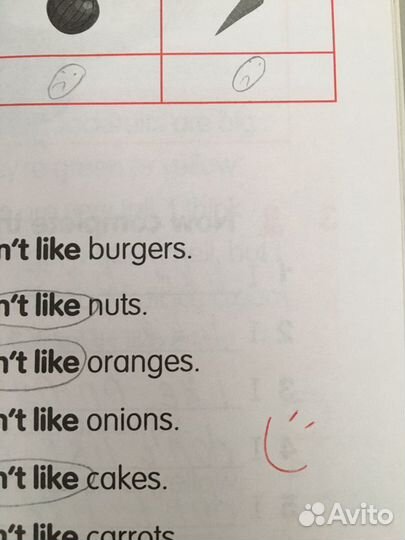 n't like burgers.
n't like nuts.
n't like oranges.
n't like onions.
n't like cakes.
n't like carrots
Avito